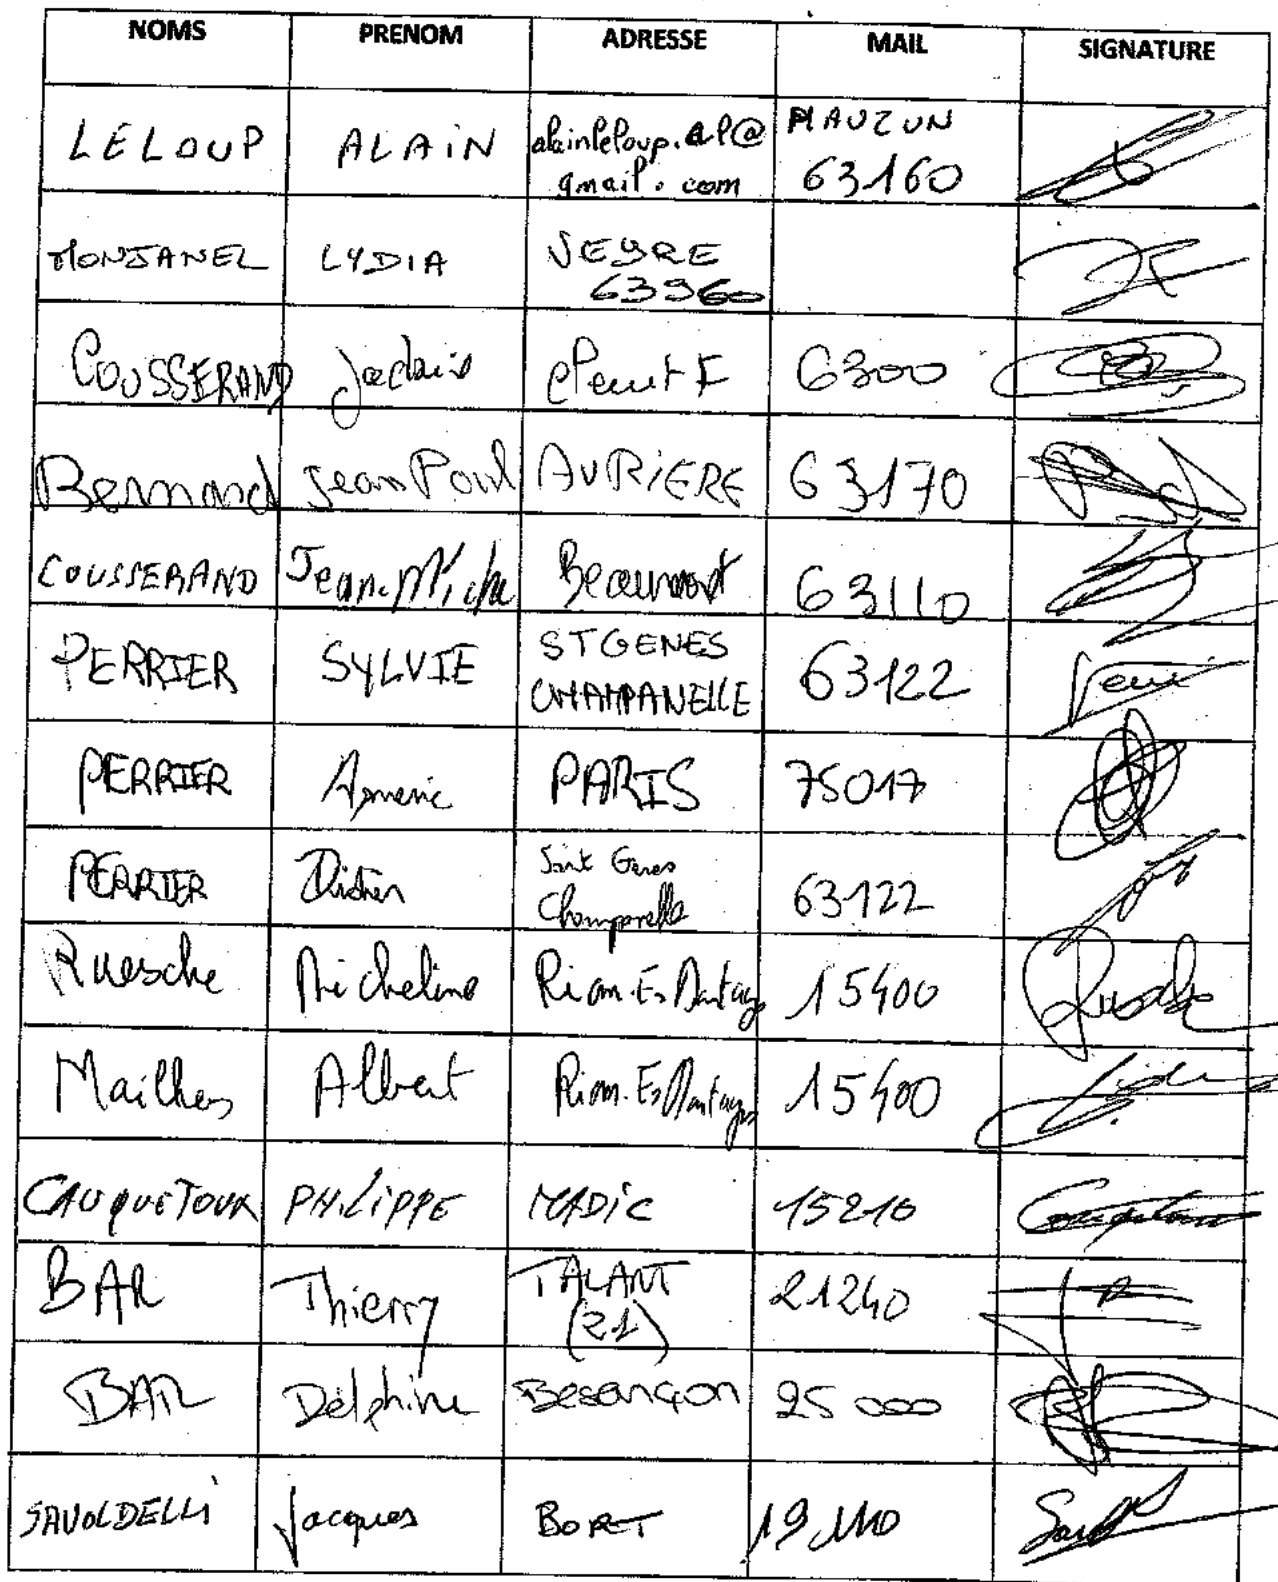 NOMS PRENOM ADRESSE MAIL SIGNATURE
LELOUP ALAIN alainleloup.al@ MAUZUN
gmail.com 63160
MONJANEL LYDIA VEYRE
63960
COUSSERAND 6300
Bernard Jean Paul AURIERE 63170
COUSSERAND Jean.Miche Beaumont 63110
PERRIER SYLVIE ST GENES 63122
CHAMPANELLE
PERRIER Aymeric PARIS 75017
PERRIER Didier Saint Genes 63122
Champanelle
Ruesche Micheline Riom-Es-Montagnes 15400
Mailhes Albert Riom-Es-Montagnes 15400
CAUQUETOUX PHILIPPE MADIC 15210
BAR Thierry TALANT 21240
(21)
BAR Delphine Besançon 25000
SAVOLDELLI Jacques BORT 19110